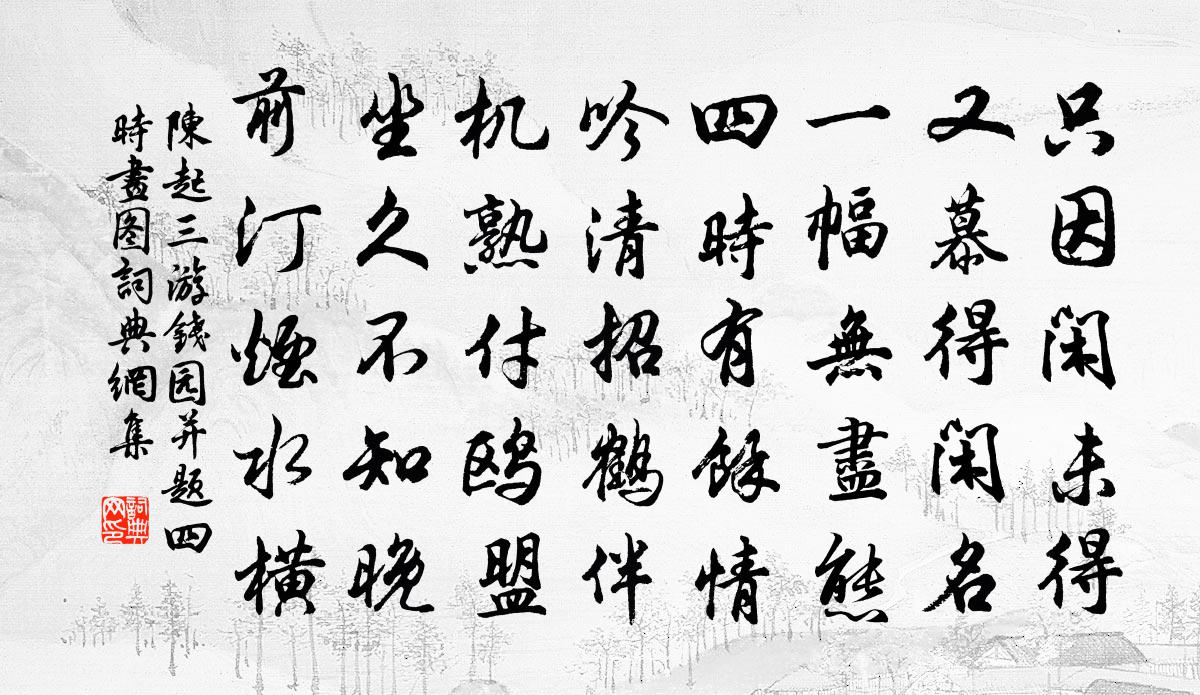 只因闲未得
又慕得闲名
一幅無盡態
四時有餘情
吟清招鶴伴
机熟付鸥盟
坐久不知晚
前汀煙水橫
陳起三游錢园并题四
時畫图詞典網集
詞典网印